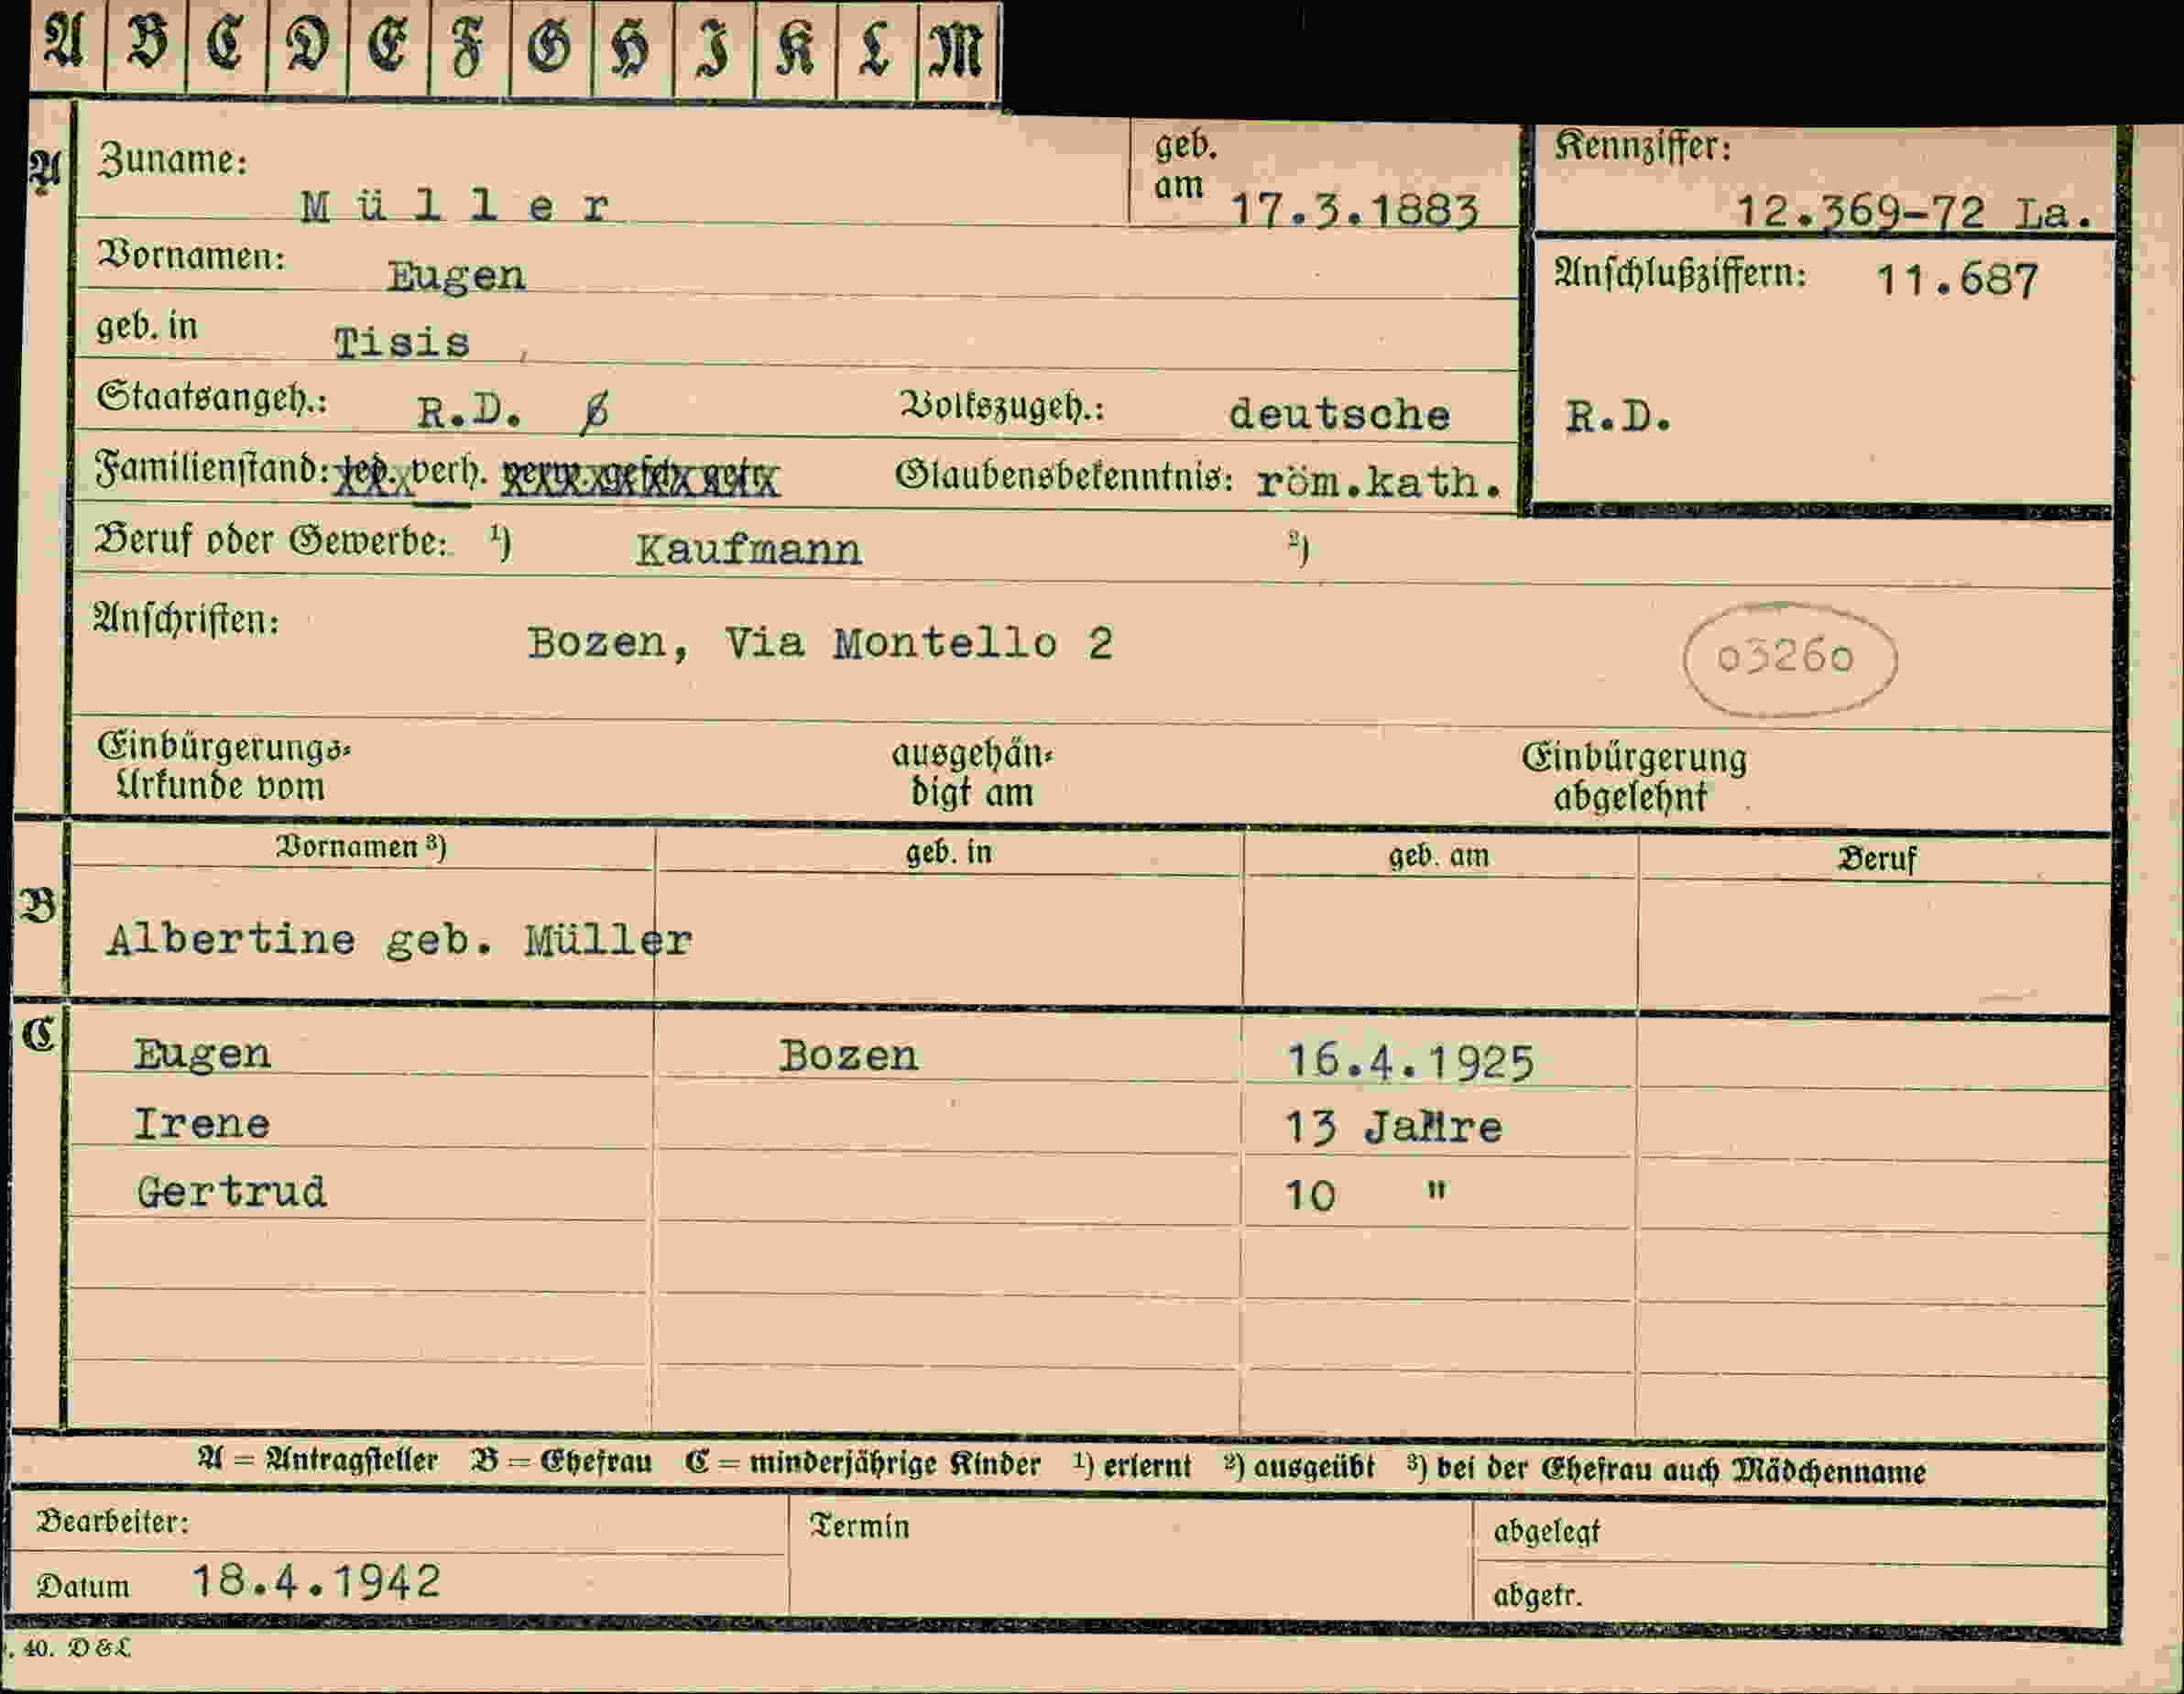 A B C D E F G H I K L M
A
Zuname: Müller
geb. am 17.3.1883
Kennziffer: 12.369-72 La.
Vornamen: Eugen
Anschlußziffern: 11.687
geb. in Tisis
Staatsangeh.: R.D.
Volkszugeh.: deutsche
R.D.
Familienstand: led. verh. verw. gesch. getr.
Glaubensbekenntnis: röm.kath.
Beruf oder Gewerbe: ¹) Kaufmann ²)
Anschriften: Bozen, Via Montello 2
03260
Einbürgerungs-
Urkunde vom
ausgehän-
digt am
Einbürgerung
abgelehnt
B
Vornamen ³) geb. in geb. am Beruf
Albertine geb. Müller
C
Eugen Bozen 16.4.1925
Irene 13 Jahre
Gertrud 10 "
A = Antragsteller B = Ehefrau C = minderjährige Kinder ¹) erlernt ²) ausgeübt ³) bei der Ehefrau auch Mädchenname
Bearbeiter: Termin abgelegt
Datum 18.4.1942 abgetr.
. 40. D & L